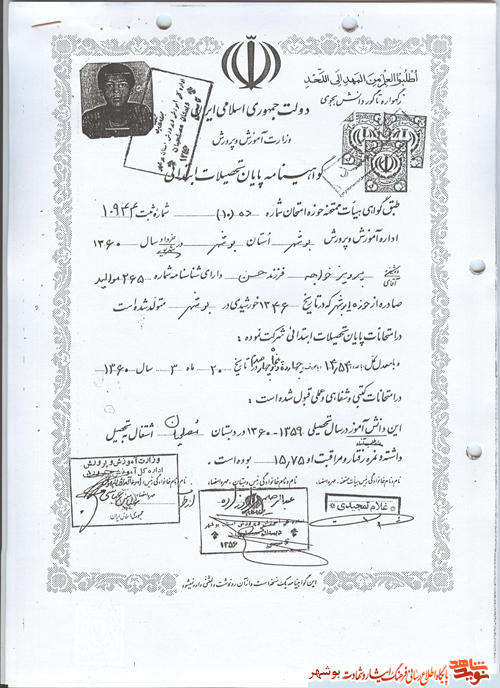 اطلبوا العلم من المهد الی اللحد
زگهواره تا گور دانش بجوی
دولت جمهوری اسلامی ایران
وزارت آموزش و پرورش
گواهینامه پایان تحصیلات ابتدائی
طبق گواهی هیأت ممتحنه حوزه امتحان شماره ده (۱۰) شماره ثبت ۱۰۹۴۴
اداره آموزش و پرورش بوشهر استان بوشهر خرداد سال ۱۳۶۰
آقای پرویز خواجه فرزند حسن دارای شناسنامه شماره ۲۶۵ موالید
صادره از حوزه بوشهر که در تاریخ ۱۳۴۶ خورشیدی در بوشهر متولد شده است
در امتحانات پایان تحصیلات ابتدائی شرکت نموده :
و با معدل کل ۱۴,۵۴ تاریخ ۲۰ ماه ۳ سال ۱۳۶۰
در امتحانات کتبی و شفاهی و عملی قبول شده است :
این دانش آموز در سال تحصیلی ۱۳۵۹-۱۳۶۰ در دبستان اشتغال به تحصیل
داشته و نمره رفتار و مراقبت او ۱۵,۷۵ بوده است .
وزارت آموزش و پرورش
اداره کل آموزش و پرورش
جمهوری اسلامی ایران
غلام تمجیدی
۱۳۵۶
این گواهینامه یک نسخه است و از آن رونوشت داده نمیشود
نوید شاهد پایگاه اطلاع رسانی فرهنگ ایثار و شهادت بوشهر